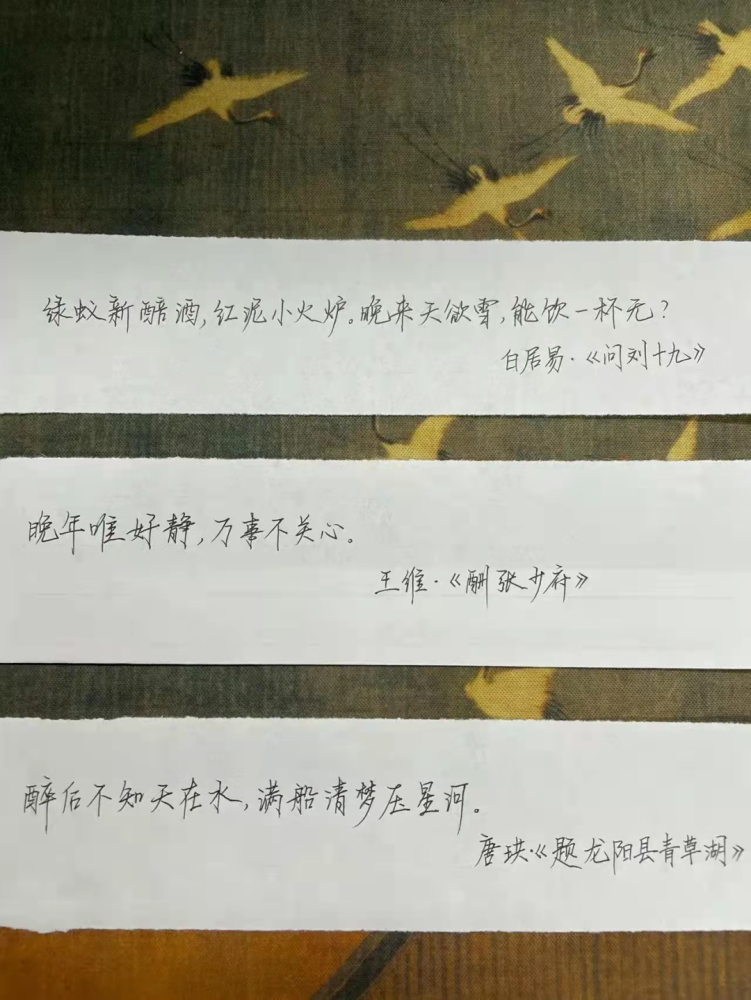 绿蚁新醅酒,红泥小火炉。晚来天欲雪,能饮一杯无?
白居易·《问刘十九》
晚年唯好静,万事不关心。
王维·《酬张少府》
醉后不知天在水,满船清梦压星河。
唐珙·《题龙阳县青草湖》